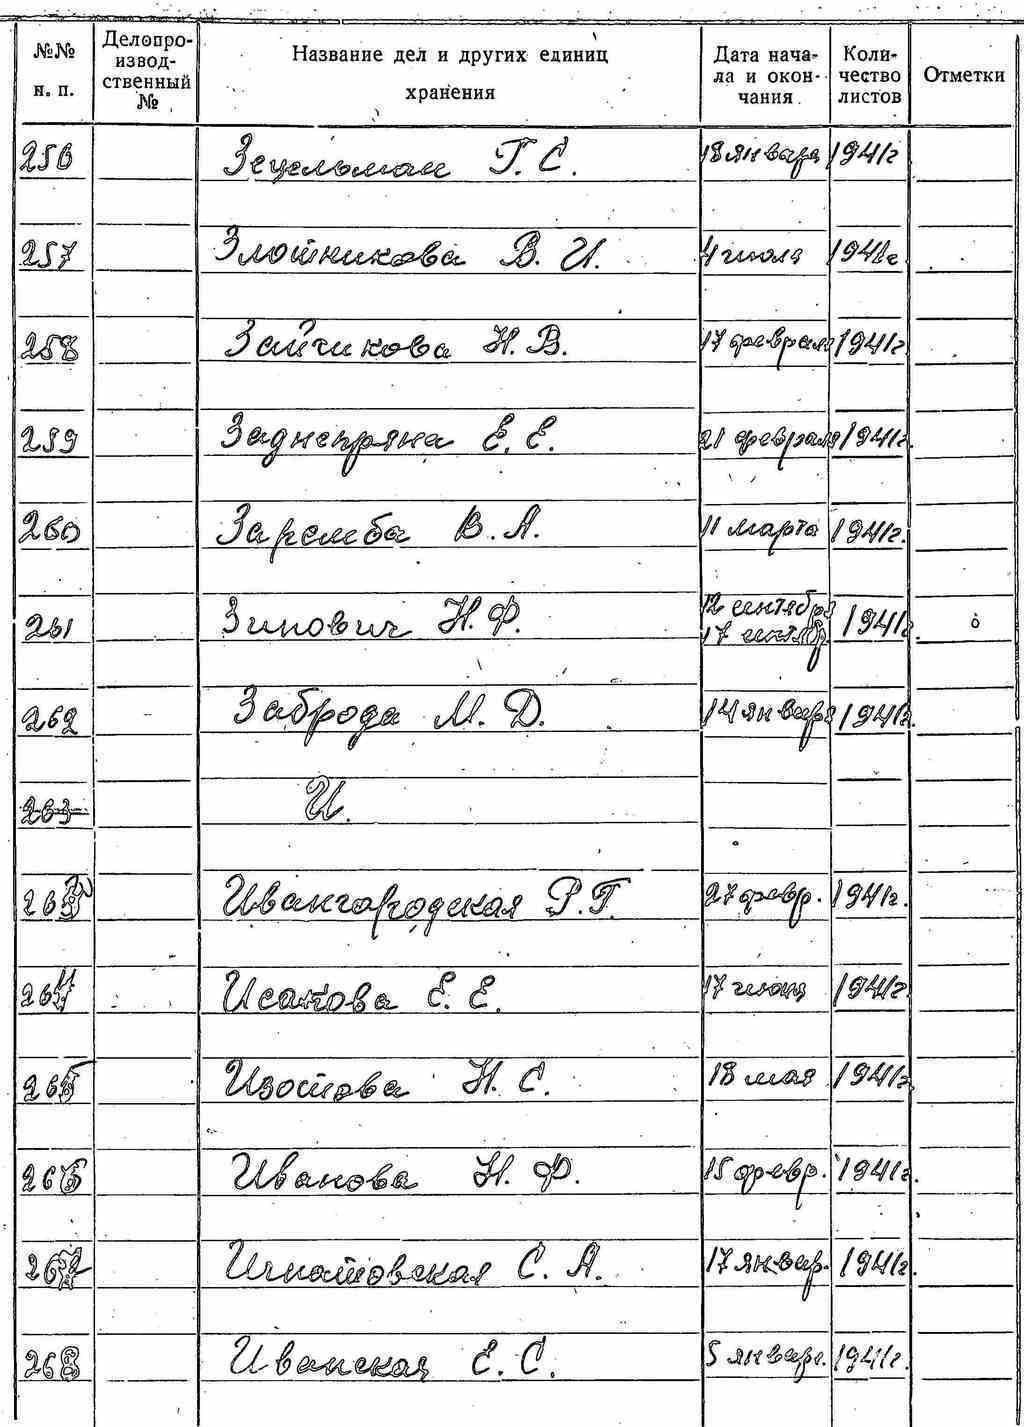 №№ н. п. Делопроизводственный № Название дел и других единиц хранения Дата начала и окончания Количество листов Отметки
256 Зецельман Г. С. 18 января 1941г
257 Злотникова В. И. 4 июля 1941г
258 Зайчикова Н. В. 17 февраля 1941г.
259 Заднепряна Е. Е. 21 февраля 1941г.
260 Заремба В. А. 11 марта 1941г.
261 Зинович Н. Ф. 12 сентября 17 сентяб. 1941г.
262 Заброда М. Д. 14 января 1941г.
263 И.
263 Ивангородская Р. Г. 27 февр. 1941г.
264 Исакова Е. Е. 17 1941г.
265 Изотова Н. С. 18 мая 1941г.
266 Иванова Н. Ф. 15 февр. 1941г.
267 Игнатовская С. А. 17 январ. 1941г.
268 Иванская Е. С. 5 январ. 1941г.